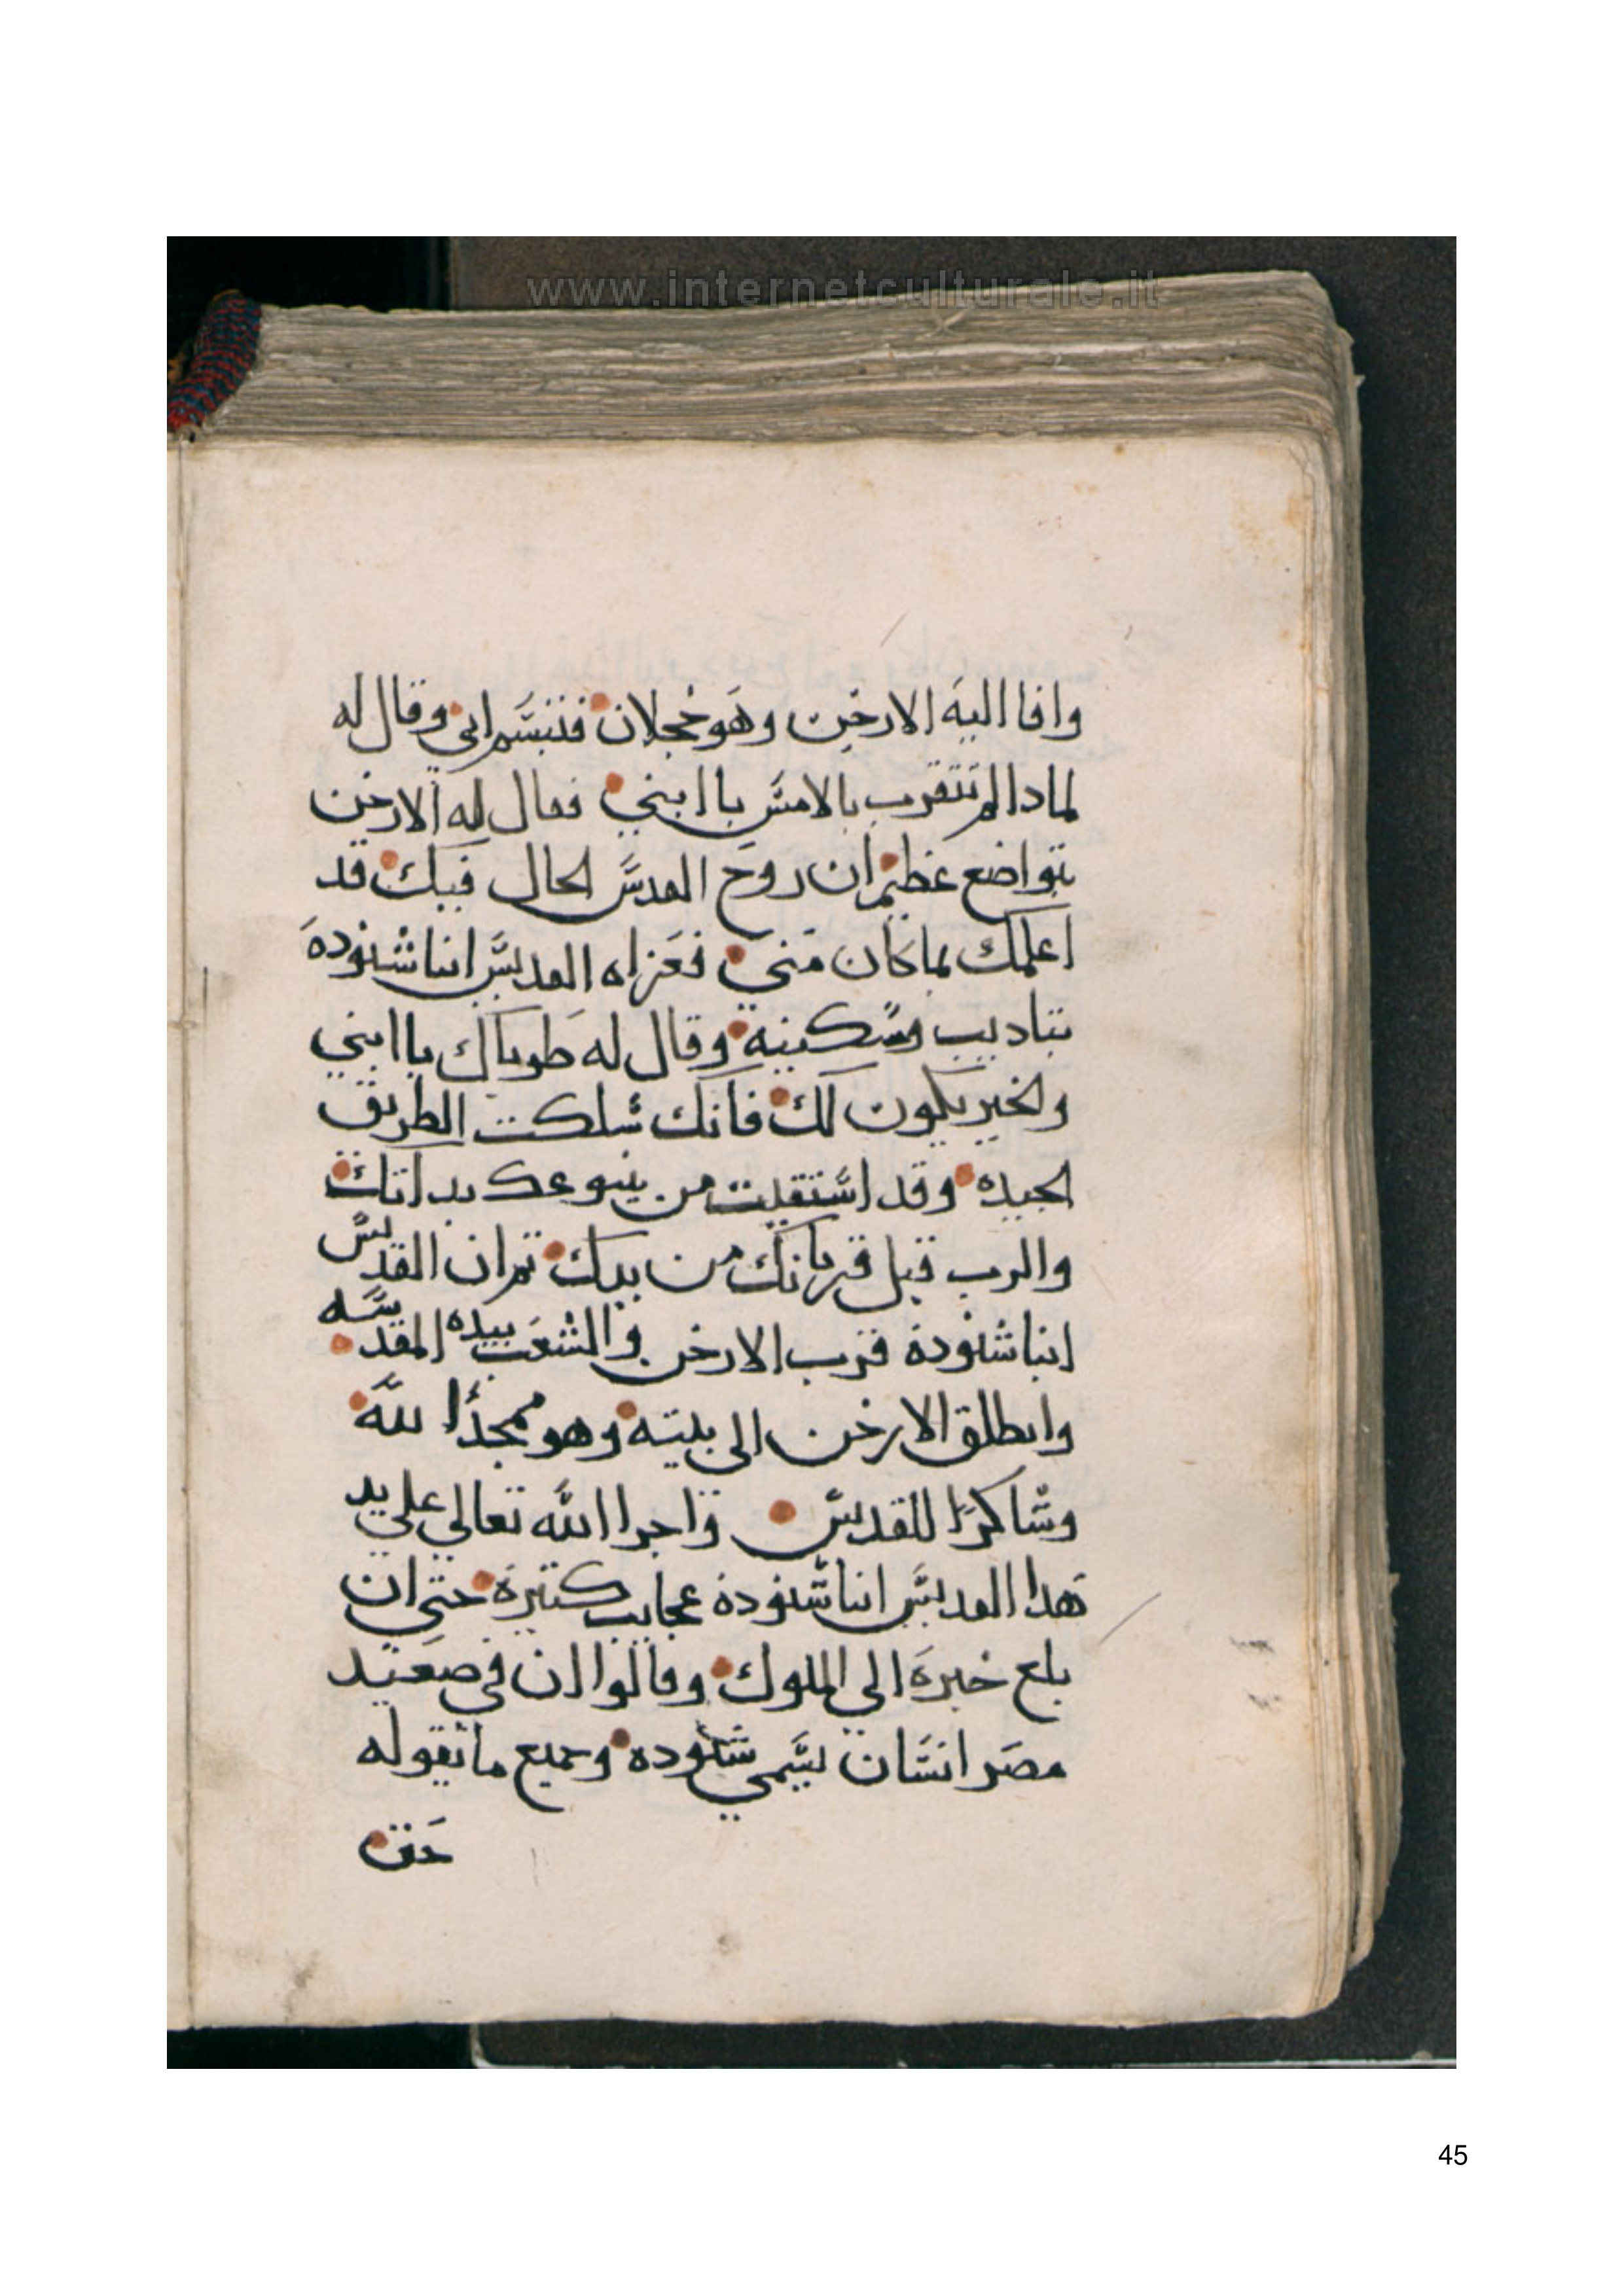 www.internetculturale.it
وافا اليه الارخن وهو خجلان فتبسم ابي وقال له
لمادا لم تتقرب بالامس يا ابني فقال له الارخن
بتواضع عظيم ان روح القدس الحال فيك قد
اعلمك بما كان مني فعزاه القديس انبا شنوده
بتاديب وسكينة وقال له طوباك يا ابني
والخير يكون لك فانك سلكت الطريق
الجيده وقد استقيت من ينبوع
والرب قبل قربانك من يدك تم ان القديس
انبا شنودة قرب الارخن والشعب بيده المقدسه
وانطلق الارخن الى بيته وهو ممجدًا لله
وشاكرًا للقديس واجرا الله تعالي علي يد
هدا القديس انبا شنودة عجايب كتيرة حتي ان
بلغ خبره الي الملوك وقالوا ان في صعيد
مصر انسان يسمي شنوده وجميع ما يقوله
حق
45